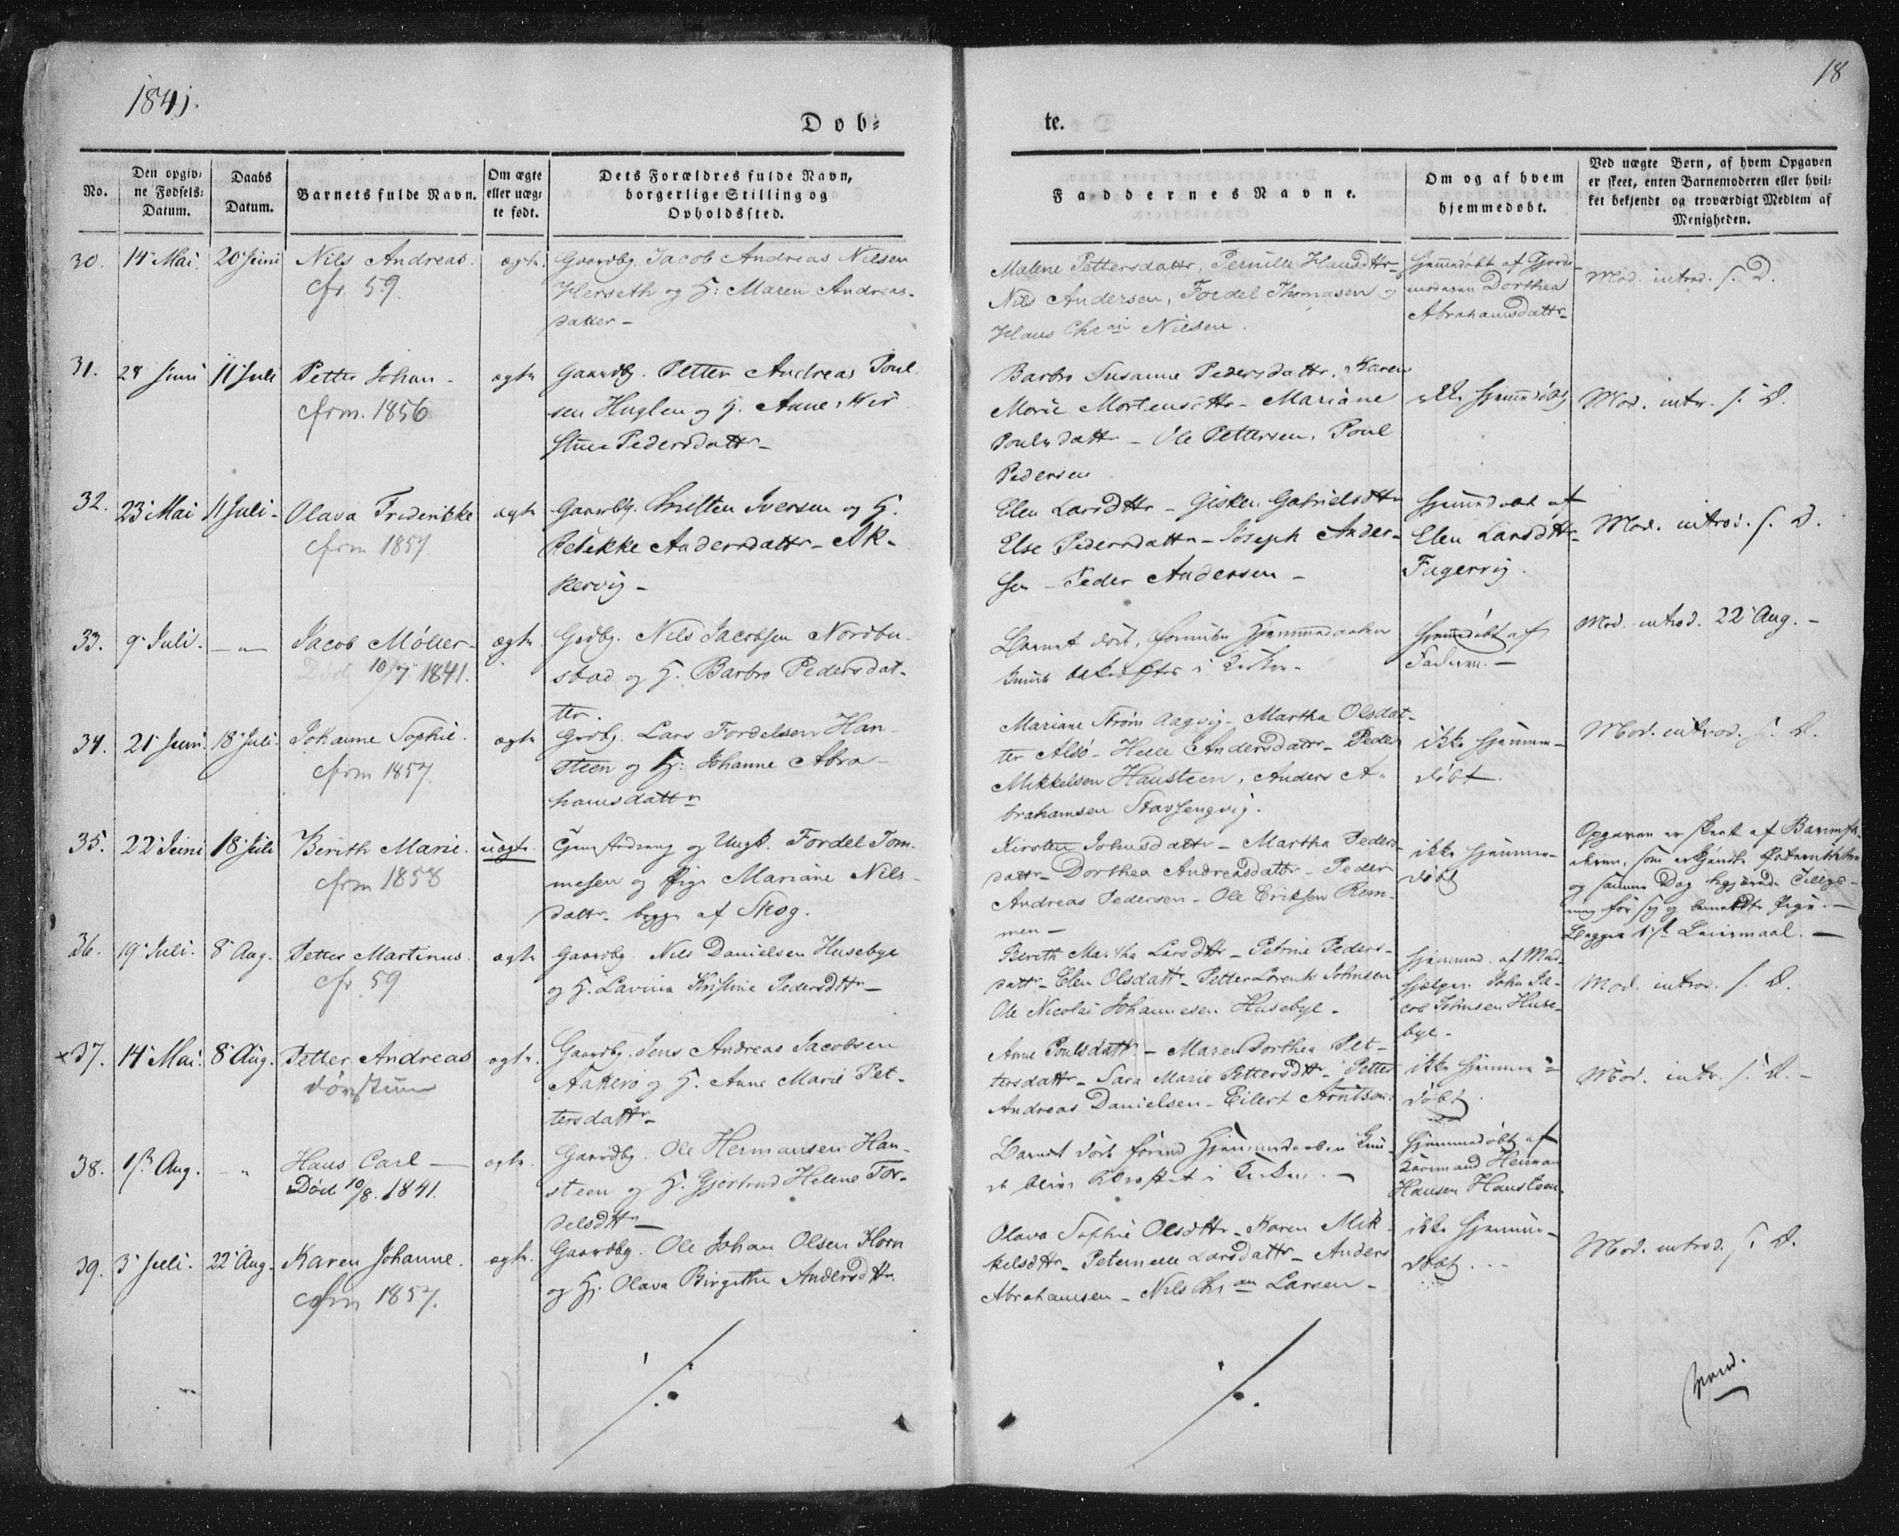 1841.
18
Dob-
te.
No.
Den opgiv-
ne Fødsels-
Datum.
Daabs
Datum.
Barnets fulde Navn.
Om ægte
eller uæg-
te født.
Dets Forældres fulde Navn,
borgerlige Stilling og
Opholdssted.
Faddernes Navne.
Om og af hvem
hjemmedøbt.
Ved uægte Børn, af hvem Opgaven
er skeet, enten Barnemoderen eller hvil-
ket bekjendt og troværdigt Medlem af
Menigheden.
30. 14 Mai. 20 Juni Nils Andreas. ægte.
cfr. 59.
Gaardbg. Jacob Andreas Nilsen
Herseth og H: Maren Andreas-
datter -
Malene Pettersdattr, Pernille Hansdttr-
Nils Andersen, Fordel Thomasen og
Hans Chr an Nilsen.
Hjemmedøbt af Gjorde-
moderen Dorthea
Abrahamsdattr-
Mod. introd. s. D.
31. 28 Juni 11 Juli Petter Johan - ægte
cfrm. 1856.
Gaardbg. Petter Andreas Poul-
sen Huglen og H. Anne Kir-
stine Pedersdattr-
Barbro Susanne Pedersdattr. Karen
Marie Mortensdttr - Mariane
Poulsdattr - Ole Pettersen, Poul
Pedersen
ikke hjemmedøbt
Mod. intr. s. D.
32. 23 Mai 11 Juli - Olava Friderikke ægte
cfrm 1857
Gaardbg. Christen Iversen og H.
Rebekke Andersdattr - Ak-
kervig -
Elen Larsdttr - Gisken Gabrielsdttr
Else Pedersdattr - Joseph Ander-
sen - Peder Andersen -
hjemmedøbt af
Elen Larsdttr-
Fagervig.
Mod. introd. s. D.
33. 9 Juli. - " - Jacob Møller - ægte
Død 10/7 1841.
Grdbg. Nils Jacobsen Nordbu-
stad og H. Barbro Pedersdat-
ter.
Barnet døde, forinden Hjemmedaaben
kunde bekræftes i Kirken -
Hjemmedøbt af
Faderen. -
Mod. introd. 22 Aug. -
34. 21 Juni. 18 Juli. Johanne Sophie. ægte
cfrm 1857.
Grdbg. Lars Fordelsen Han-
steen og H: Johanne Abra-
hamsdattr
Mariane Strøm Aagvig - Martha Olsdat-
ter Alsø - Helle Andersdattr - Peder
Mikkelsen Hansteen, Anders A-
brahamsen Stavsengvig.
ikke hjemme-
døbt.
Mod. introd. s. D.
35. 22 Juni 18 Juli Berith Marie. uægte.
cfrm 1858
og Ungk. Fordel Tom-
mesen og Pige Mariane Nils-
dattr - begge af Skog.
Kirsten Johnsdattr - Martha Peders-
dattr - Dorthea Andreasdattr - Peder
Andreas Pedersen - Ole Eriksen Rem-
men -
ikke hjemme-
døbt
Opgaven er skeet af Barnefa-
deren, som erkjendte Paterniteten
og samme Dag begjærede Tillys-
ning for sig og bemeldte Pige. -
Begges 1ste Leiermaal. -
36. 19 Juli. 8 Aug. Petter Martinus. ægte
cfr. 59
Gaardbg. Nils Danielsen Husebye
og H. Lavina Kristine Pedersdttr -
Bereth Martha Larsdttr - Petrine Peders-
dattr - Elen Olsdattr - Petter Lorents Johnsen
Ole Nicolai Johannesen Husebye -
hjemmed. af Med-
hjælper John Ja-
cob Johnsen Huse-
bye -
Mod. introd. s. D.
x37. 14 Mai. 8 Aug. Petter Andreas ægte.
døvstum
Gaardbg. Jens Andreas Jacobsen
Aakerø og H. Anne Marie Pet-
tersdattr -
Anne Poulsdattr - Maren Dorthea Pet-
tersdattr - Sara Marie Pettersdttr - Petter
Andreas Danielsen - Eilert Arntsen.
ikke hjemme-
døbt.
Mod. intr. s. D. -
38. 1ste Aug. - " Hans Carl - ægte.
Død 10/8. 1841.
Gaardbg. Ole Hermansen Han-
steen og H. Gjertrud Helene For-
delsdttr -
Barnet døde førend Hjemmedaaben kun-
de blive bekræftet i Kirken. -
Hjemmedøbt af
Kaarmand Herman
Hansen Hansteen.
39. 3 Juli. 22 Aug. Karen Johanne. ægte.
cfrm 1857.
Gaardbg. Ole Johan Olsen Horn
og H. Olava Birgithe Andersdttr.
Olava Sophie Olsdttr - Karen Mik-
kelsdttr - Peternelle Larsdattr - Anders
Abrahamsen - Nils Chr an Larsen -
ikke hjemme-
døbt. - -
Mod. introd. s. D.